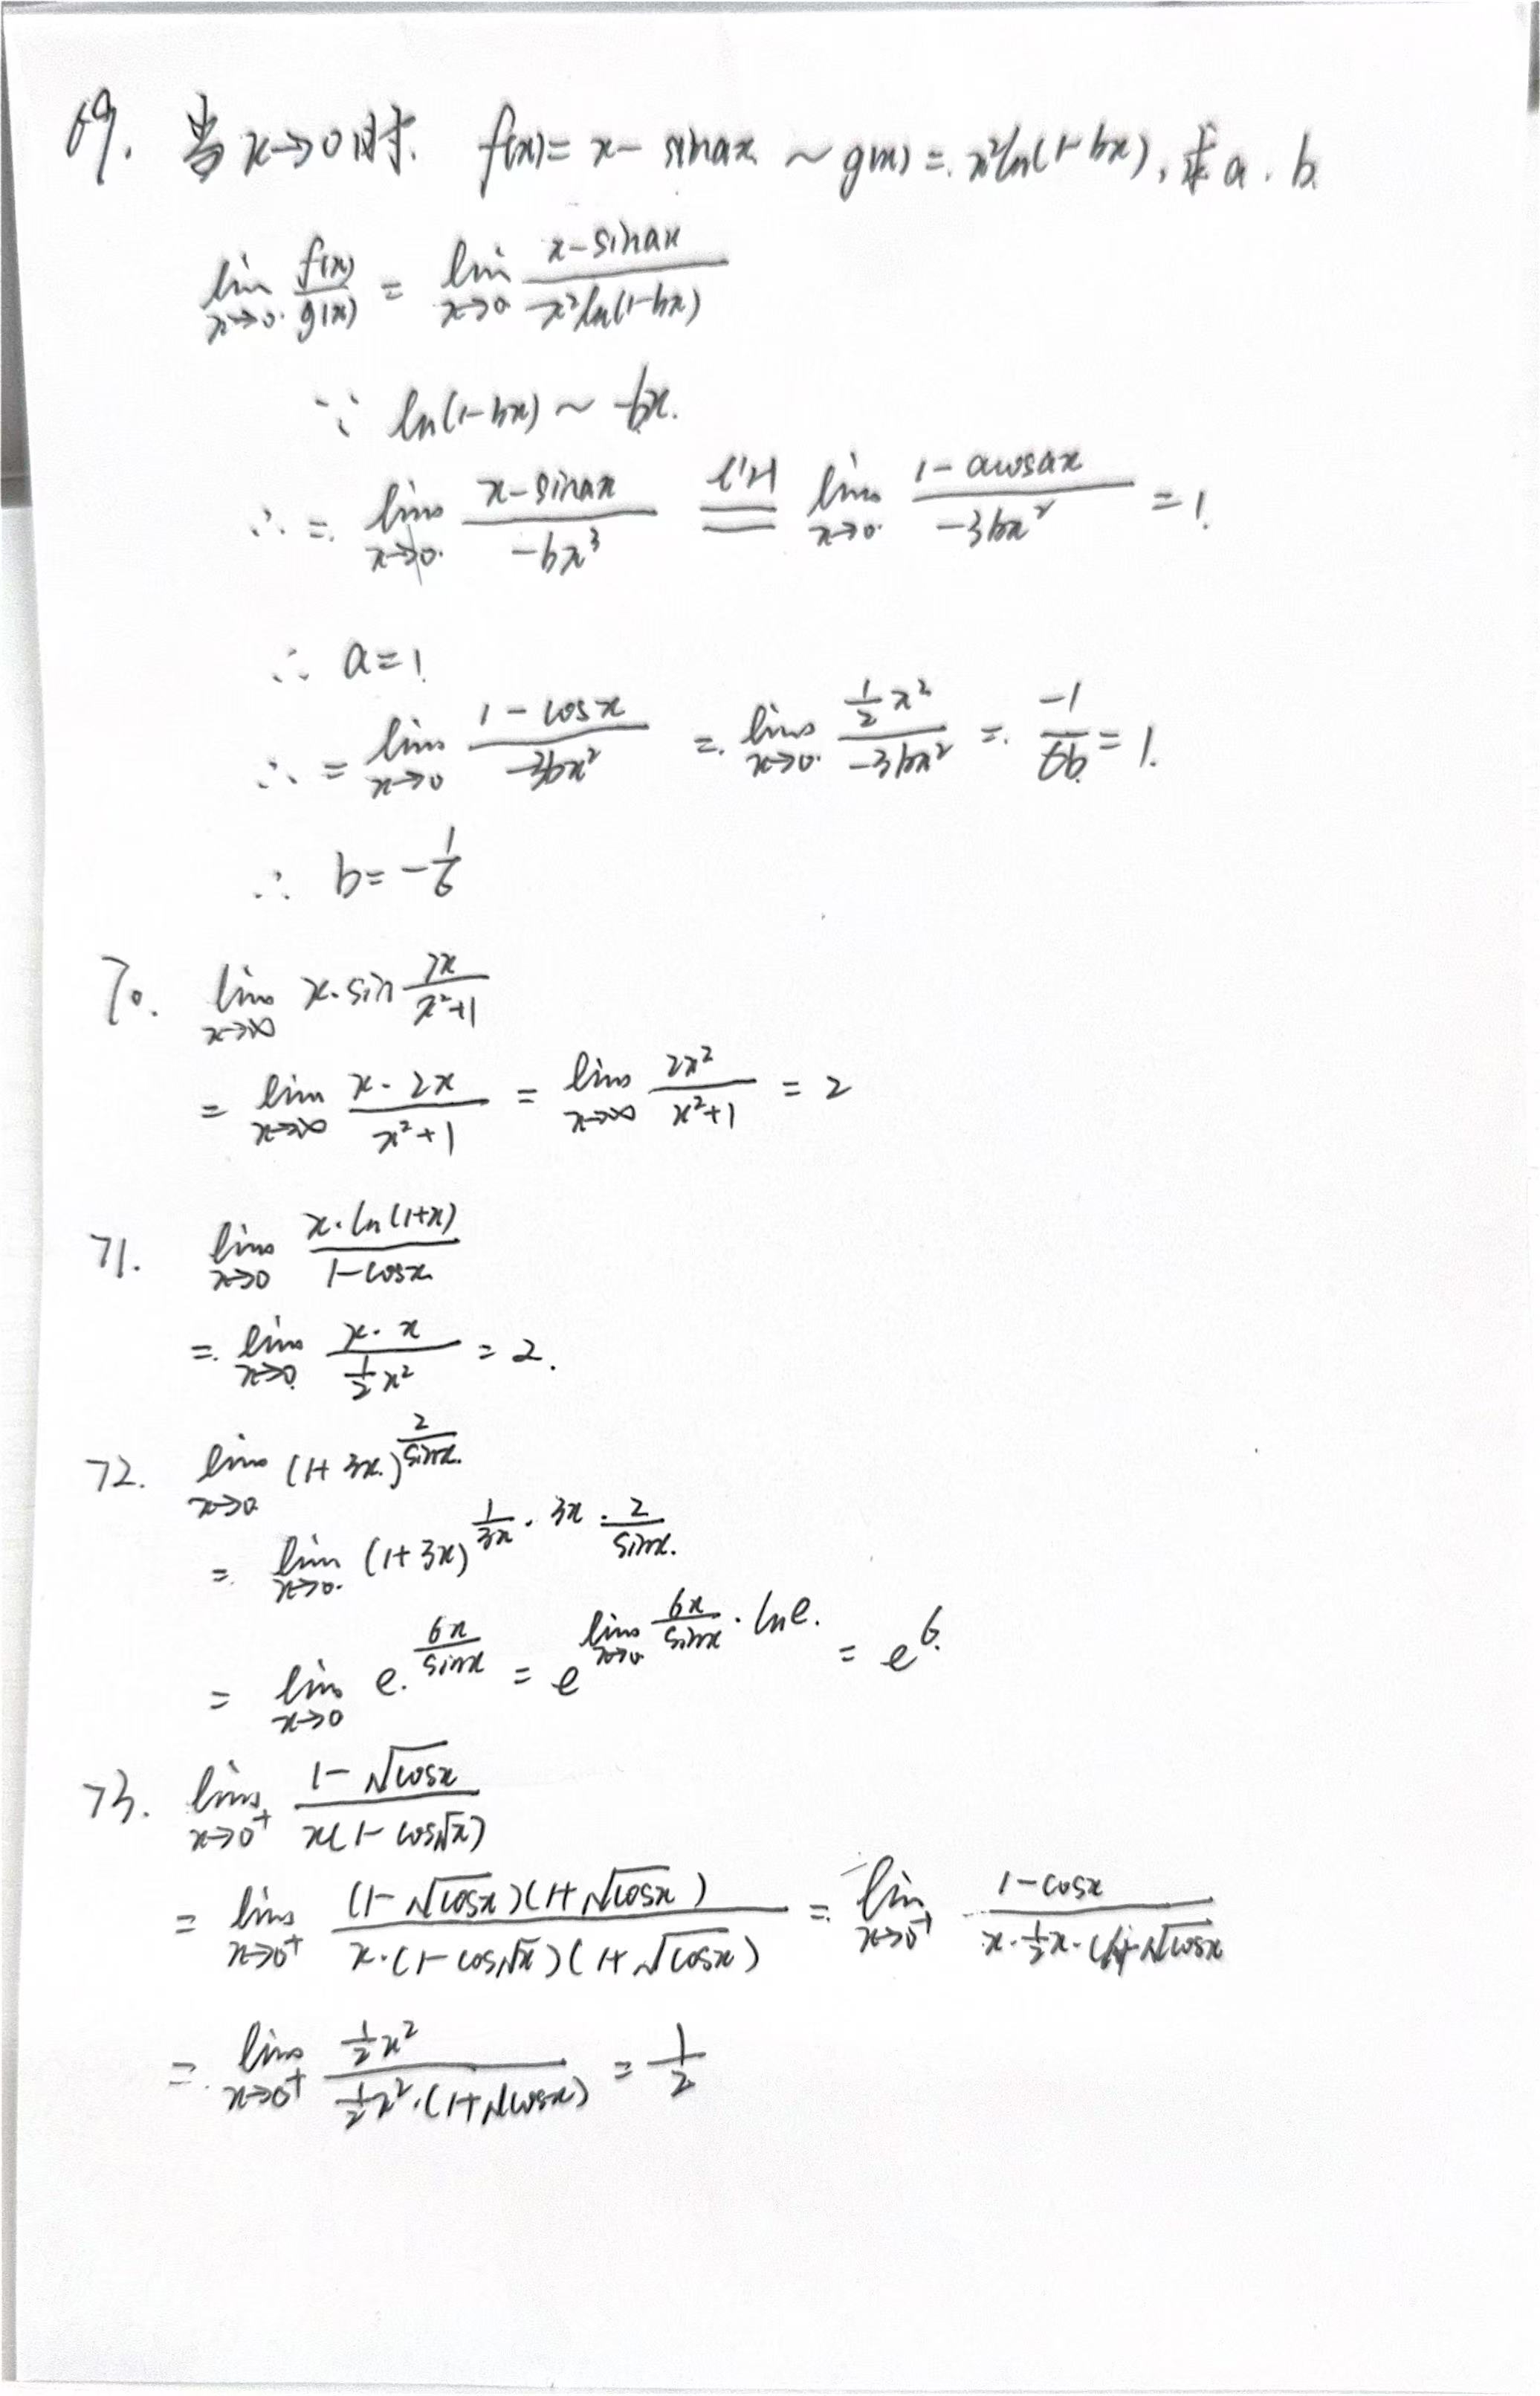 69. 当x→0时. f(x)= x- sinax ~ g(x)= x²ln(1-bx), 求a. b.
lim x→0 f(x)/g(x) = lim x→0 (x-sinax)/(-x²ln(1-bx))
∵ ln(1-bx) ~ -bx.
∴ = lim x→0 (x-sinax)/(-bx³) L'H = lim x→0 (1-acosax)/(-3bx²) = 1.
∴ a=1
∴ = lim x→0 (1-cosx)/(-3bx²) = lim x→0 (½x²)/(-3bx²) = -1/6b = 1.
∴ b= -1/6
70. lim x→∞ x·sin 2x/(x²+1)
= lim x→∞ (x·2x)/(x²+1) = lim x→∞ 2x²/(x²+1) = 2
71. lim x→0 (x·ln(1+x))/(1-cosx)
= lim x→0 (x·x)/(½x²) = 2.
72. lim x→0 (1+3x)^(2/sinx)
= lim x→0 (1+3x)^(1/3x · 3x · 2/sinx)
= lim x→0 e^(6x/sinx) = e^(lim x→0 6x/sinx · lne) = e^6
73. lim x→0⁺ (1-√cosx)/(x(1-cos√x))
= lim x→0⁺ ((1-√cosx)(1+√cosx))/(x·(1-cos√x)(1+√cosx)) = lim x→0⁺ (1-cosx)/(x·½x·(1+√cosx
= lim x→0⁺ (½x²)/(½x²·(1+√cosx)) = 1/2